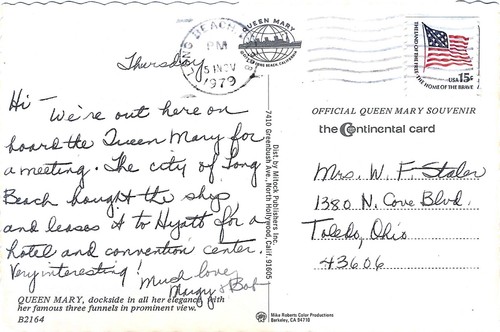 Thursday
Hi - We're out here on
board the Queen Mary for
a meeting. The city of Long
Beach bought the ship
and leases it to Hyatt for a
hotel and convention center.
Very interesting!
Much love,
Margy & Bob
QUEEN MARY, dockside in all her elegance with
her famous three funnels in prominent view.
B2164
Dist. by Mitock Publishers Inc.
7410 Greenbush Ave., North Hollywood, Calif. 91605
Mike Roberts Color Productions
Berkeley, CA 94710
LONG BEACH,
PM
5 NOV
1979
QUEEN MARY
LONG BEACH, CALIFORNIA
THE LAND OF THE FREE
USA 15c
THE HOME OF THE BRAVE
OFFICIAL QUEEN MARY SOUVENIR
the Continental card
Mrs. W. F. Staler
1380 N. Cove Blvd.
Toledo, Ohio
43606